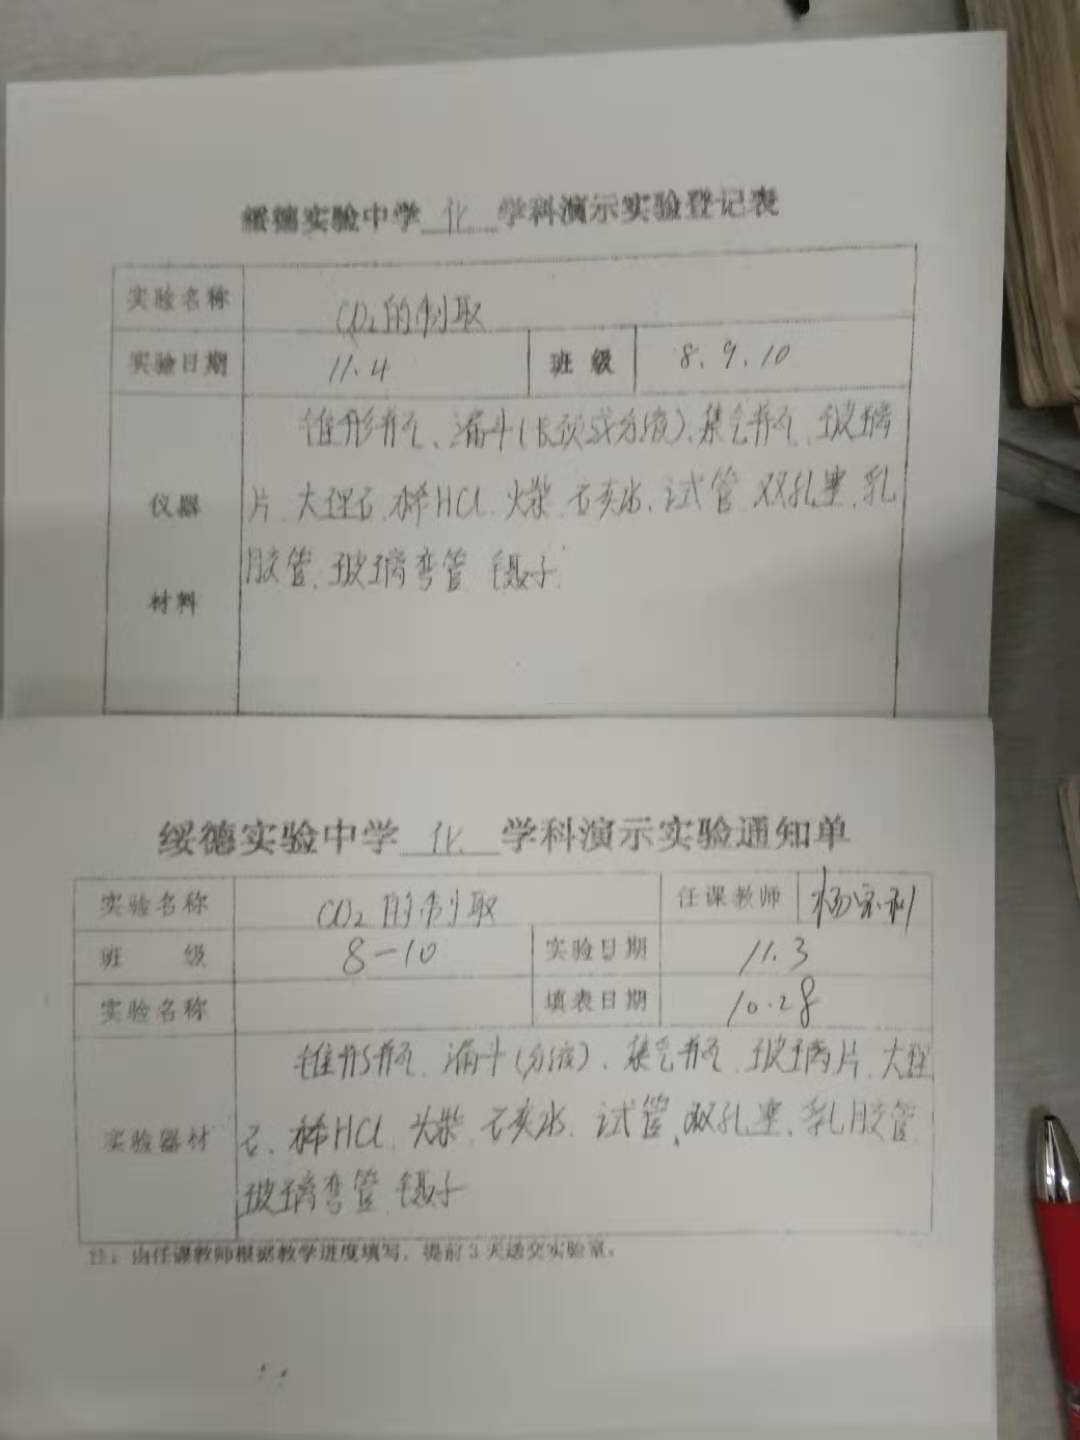 绥德实验中学 化 学科演示实验登记表
实验名称 CO₂的制取
实验日期 11.4 班级 8.9.10
锥形瓶、漏斗(长颈或分液)、集气瓶、玻璃
仪器 片、大理石、稀HCl、火柴、石灰水、试管、双孔塞、乳
胶管、玻璃弯管、镊子.
材料
绥德实验中学 化 学科演示实验通知单
实验名称 CO₂的制取 任课教师 杨宝利
班 级 8-10 实验日期 11.3
实验名称 填表日期 10.28
锥形瓶、漏斗(分液)、集气瓶、玻璃片、大理
实验器材 石、稀HCl、火柴、石灰水、试管、双孔塞、乳胶管
玻璃弯管、镊子
注：由任课教师根据教学进度填写，提前3天送交实验室。